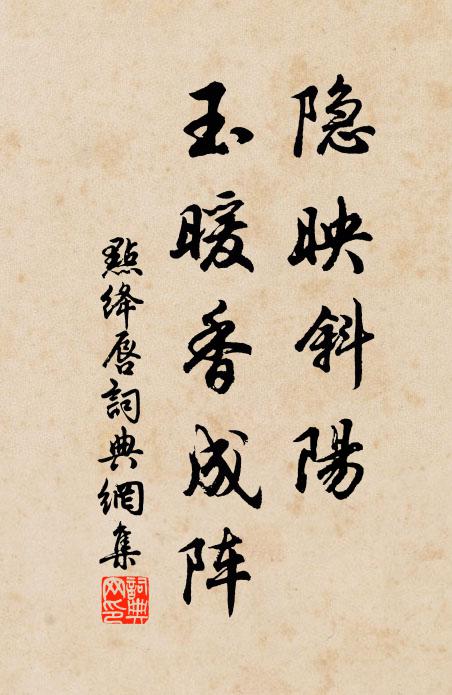 隐映斜陽
玉暖香成阵
點绛唇詞典網集
詞典
网印